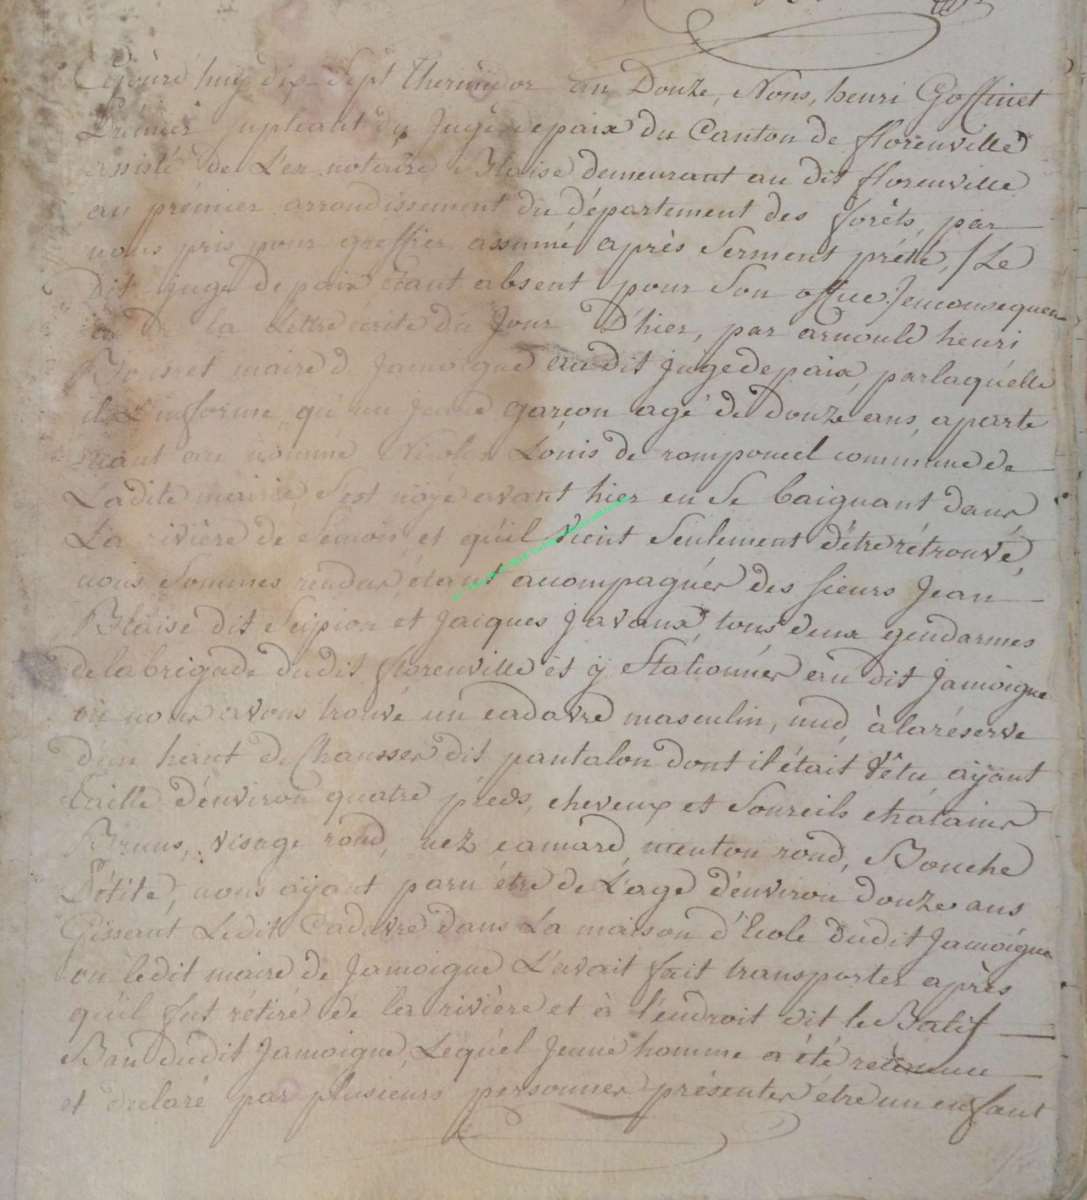 Cejourd'huy dix Sept thermidor an Douze, Nous, henri Goffinet
Premier Supleant du Juge de paix du Canton de florenville
assisté de L'ex notaire Blaise demeurant au dit florenville
au prémier arrondissement du département des forêts, par
nous pris pour greffier assumé après Serment prété, /Le
dit juge de paix étant absent pour Son office/ enconsequen
ce de la Lettre ecrite du Jour D'hier, par arnould henri
maire d Jamoigne au dit juge de paix, par laquélle
il L'informe qu'un Jeune garçon agé de Douze ans, aparte
nant au nommé Nicolas Louis de romponcel commune de
Ladite mairie S'est noyé avant hier en Se baignant dans
La rivière de Semois et qu'il vient Seulement d'étre rétrouvé,
nous Sommes rendus, étant accompagnés des Sieurs Jean
Blaise dit Scipion et Jacques Javaux, tous deux gendarmes
de la brigade dudit florenville et ÿ Stationnés au dit Jamoigne
où nous avons trouvé un cadavre masculin, nud, à la réserve
d'un haut de Chausses dit pantalon dont il était Vêtu aÿant
taille d'environ quatre pieds, cheveux et Sourcils chatains
Bruns, visage rond, nez camard, menton rond, Bouche
Pétite, nous aÿant paru être de L'age d'environ douze ans
Gissant Ledit Cadavre dans La maison d'Ecole dudit Jamoigne
où ledit maire de Jamoigne L'avait fait transporter après
qu'il fut rétiré de la rivière et à l'endroit dit le
Ban dudit Jamoigne, Lequél Jeune homme a été reconnu
et déclaré par plusieurs personnes présentes étre un enfant